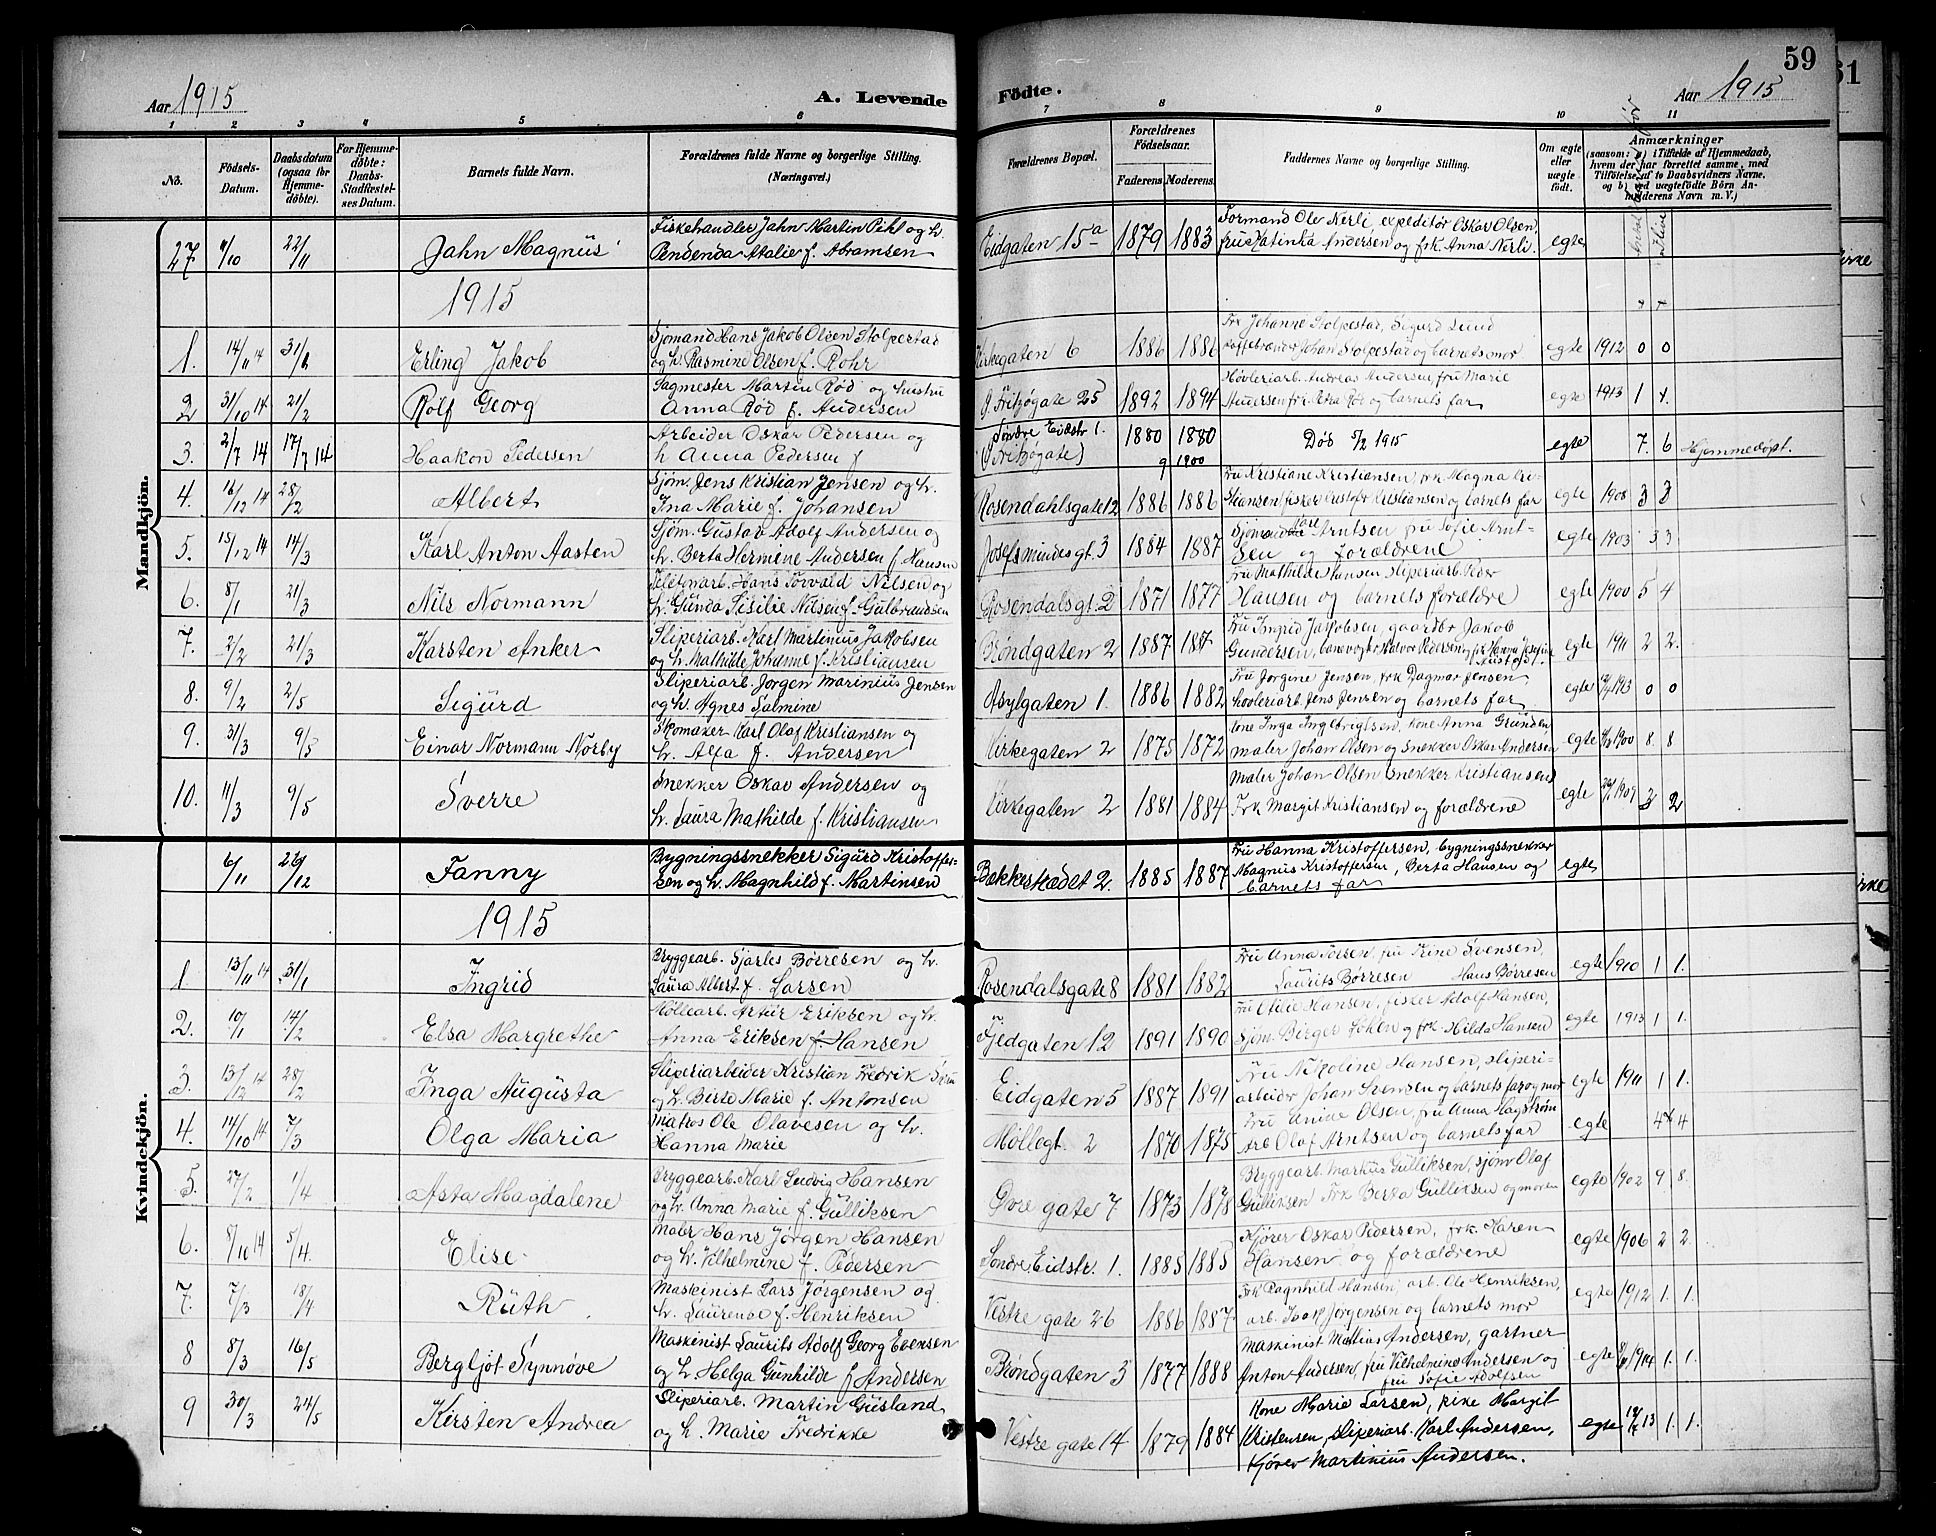 59
61
Aar 1915
A. Levende
Födte.
Aar 1915
1 2 3 4 5 6 7 8 9 10 11
No.
Födsels-Datum.
Daabsdatum (ogsaa for Hjemmedöbte).
For Hjemmedöbte: Daabs-Stadfæstelses Datum.
Barnets fulde Navn.
Forældrenes fulde Navne og borgerlige Stilling.
(Næringsvei.)
Forældrenes Bopæl.
Forældrenes Födselsaar.
Faderens. Moderens.
Faddernes Navne og borgerlige Stilling.
Om ægte eller uægte födt.
Anmærkninger
(saasom: a) i Tilfælde af Hjemmedaab, hvem der har forrettet samme, med Tilföielse af to Daabsvidners Navne, og b) ved uægtefödte Börn Anmelderens Navn m. V.)
Mandkjön.
27 22/11 Jahn Magnus Fiskehandler Jahn Martin Pihl og h. Eidgaten 15a 1879 1883 Formand Ole Nerli, expeditör Oskar Olsen,
Atalie f. Abramsen fru Katinka Andersen og frk. Anna Nerli. egte
1915
1. 14/11 14 31/1 Erling Jakob Sjömand Hans Jakob Olsen Stolpestad Kirkegaten 6 1886 1886 Frk Johanne Stolpestad, Sigurd Lund
og h. Rasmine Olsen f. Rohr Johan Stolpestad og barnets mor egte 1912 0 0
2 31/10 14 21/2 Rolf Georg Sagmester Martin Röd og hustru 25 1892 1894 Hövleriarb. Andreas Andersen, fru Marie
Anna Röd f. Andersen Andersen frk. Petra Röd og barnets far egte 1913 1 1.
3. 2/7 14 17/7 14 Haakon Pedersen Arbeider Oskar Pedersen og Söndre Eidstr 1. 1880 1880 Död 5/2 1915 egte 7. 6 Hjemmedöpt.
h Anna Pedersen f
4. 16/12 14 28/2 Albert Sjöm. Jens Kristian Jensen og h. Rosendahlsgate 12 1886 1886 Fru Kristiane Kristiansen, frk Magna Kri-
Ina Marie f. Johansen stiansen, fisker Kristofer Kristiansen og barnets far egte 1908 3 3
5. 15/12 14 14/3 Karl Anton Aasten Sjöm. Gustav Adolf Andersen og Josefsmindesgt. 3 1884 1887 Sjömand Arntsen fru Sofie Arnt-
h. Berta Hermine Andersen f. Hansen sen og forældrene egte 1903 3 3
6. 8/1 21/3 Nils Normann Hans Torvald Nilsen og Rosendalsgt. 2 1871 1877 Fru Mathilde Hansen, sliperiarb. Peder
h. Gunda Sisilie Nilsen f. Gulbrandsen Hansen og barnets forældre egte 1900 5 4
7. 2/2 21/3 Karsten Anker Sliperiarb. Karl Martinius Jakobsen Bröndgaten 2 1887 Fru Ingrid Jakobsen, gaardbr Jakob
og h. Mathilde Johanne f. Kristiansen Gundersen, egte 1911 2 2.
8. 9/2 2/5 Sigurd Sliperiarb. Jörgen Marinius Jensen Asylgaten 1. 1886 1882 Fru Jörgine Jensen, frk Dagmar Jensen,
og h. Agnes Salmine hövleriarb. Jens Jensen og barnets far egte 1913 0 0
9. 31/3 9/5 Einar Normann Norby Skomaker Karl Olaf Kristiansen og Kirkegaten 2 1875 1872 Kone Inga Ingebrigtsen, kone Anna Grunden,
h. Alfa f. Andersen maler Johan Olsen og snekker Oskar Andersen egte 1900 8. 8
10. 11/3 9/5 Sverre Snekker Oskar Andersen og Kirkegaten 2 1881 1884 Maler Johan Olsen snekker Kristiansen
h. Laura Mathilde f. Kristiansen Frk Margit Kristiansen og forældrene egte 1909 3 2
Kvindekjön.
6/11 26/12 Fanny Bygningssnekker Sigurd Kristoffer- Bakkestrædet 2. 1885 1887 Fru Hanna Kristoffersen, bygningssnekker
sen og h. Magnhild f. Martinsen Magnus Kristoffersen, Berta Hansen og
barnets far egte
1915
1. 13/11 14 31/1 Ingrid Bryggearb. Sjarles Börresen og h. Rosendalsgate 8 1881 1882 Fru Anna Torsen, fru Trine Svensen,
Laura Albert f. Larsen Laurits Börresen Hans Börresen egte 1910 1 1.
2. 10/1 14/2 Elsa Margrethe Möllearb. Artur Eriksen og h. 12 1891 1890 Fru Otilie Hansen, fisker Adolf Hansen,
Anna Eriksen f Hansen Sjöm. Birger og frk. Hilda Hansen egte 1913 1 1.
3. 13/12 14 28/2 Inga Augusta Sliperiarbeider Kristian Fredrik Eidgaten 5 1887 1891 Fru Nikoline Hansen, sliperi-
og h. Berte Marie f. Antonsen arbeider Johan Svensen og barnets far og mor egte 1911 1 1.
4. 14/10 14 7/3 Olga Maria Matros Ole Olavesen og h. Möllegt. 2 1870 1875 Fru Anine Olsen, fru Anna Hagström
Hanna Marie arb Olaf Arntsen og barnets far egte 4 4
5. 27/2 1/4 Asta Magdalene Bryggearb. Karl Ludvig Hansen Övre gate 7 1873 1878 Bryggearb. Markus Gulliksen, sjöm Olaf
og h. Anna Marie f. Gulliksen Gulliksen Frk Berta Gulliksen og moren egte 1902 9 8.
6. 8/10 14 5/4. Elise Maler Hans Jörgen Hansen Söndre Eidstr. 1. 1885 1885 Kjörer Oskar Pedersen, frk. Karen
og h. Vilhelmine f. Pedersen Hansen og forældrene egte 1906 2 2.
7. 7/3 18/4 Ruth Maskinist Lars Jörgensen og Vestre gate 26 1886 1887 Frk Ragnhild Hansen, arb. Ole Henriksen,
h. Laurense f. Henriksen arb. Isak Jörgensen og barnets mor egte 1912 1. 1.
8 8/3 16/5 Bergljot Synnöve Maskinist Laurits Adolf Georg Evensen Bröndgaten 3 1877 1888 Maskinist Mathias Andersen, gartner
og h. Helga Gunhilde f Andersen Anton Andersen, fru Vilhelmine Andersen og
fru Sofie Adolfsen egte 1914 1. 1.
9 30/3 24/5 Kirsten Andrea Sliperiarb. Martin Gusland Vestre gate 14 1879 1884 Kone Marie Larsen, pike Margit
og h. Marie Fredrikke Kristensen, sliperiarb. Karl Andersen,
kjörer Martinius Andersen. egte 13 1. 1.